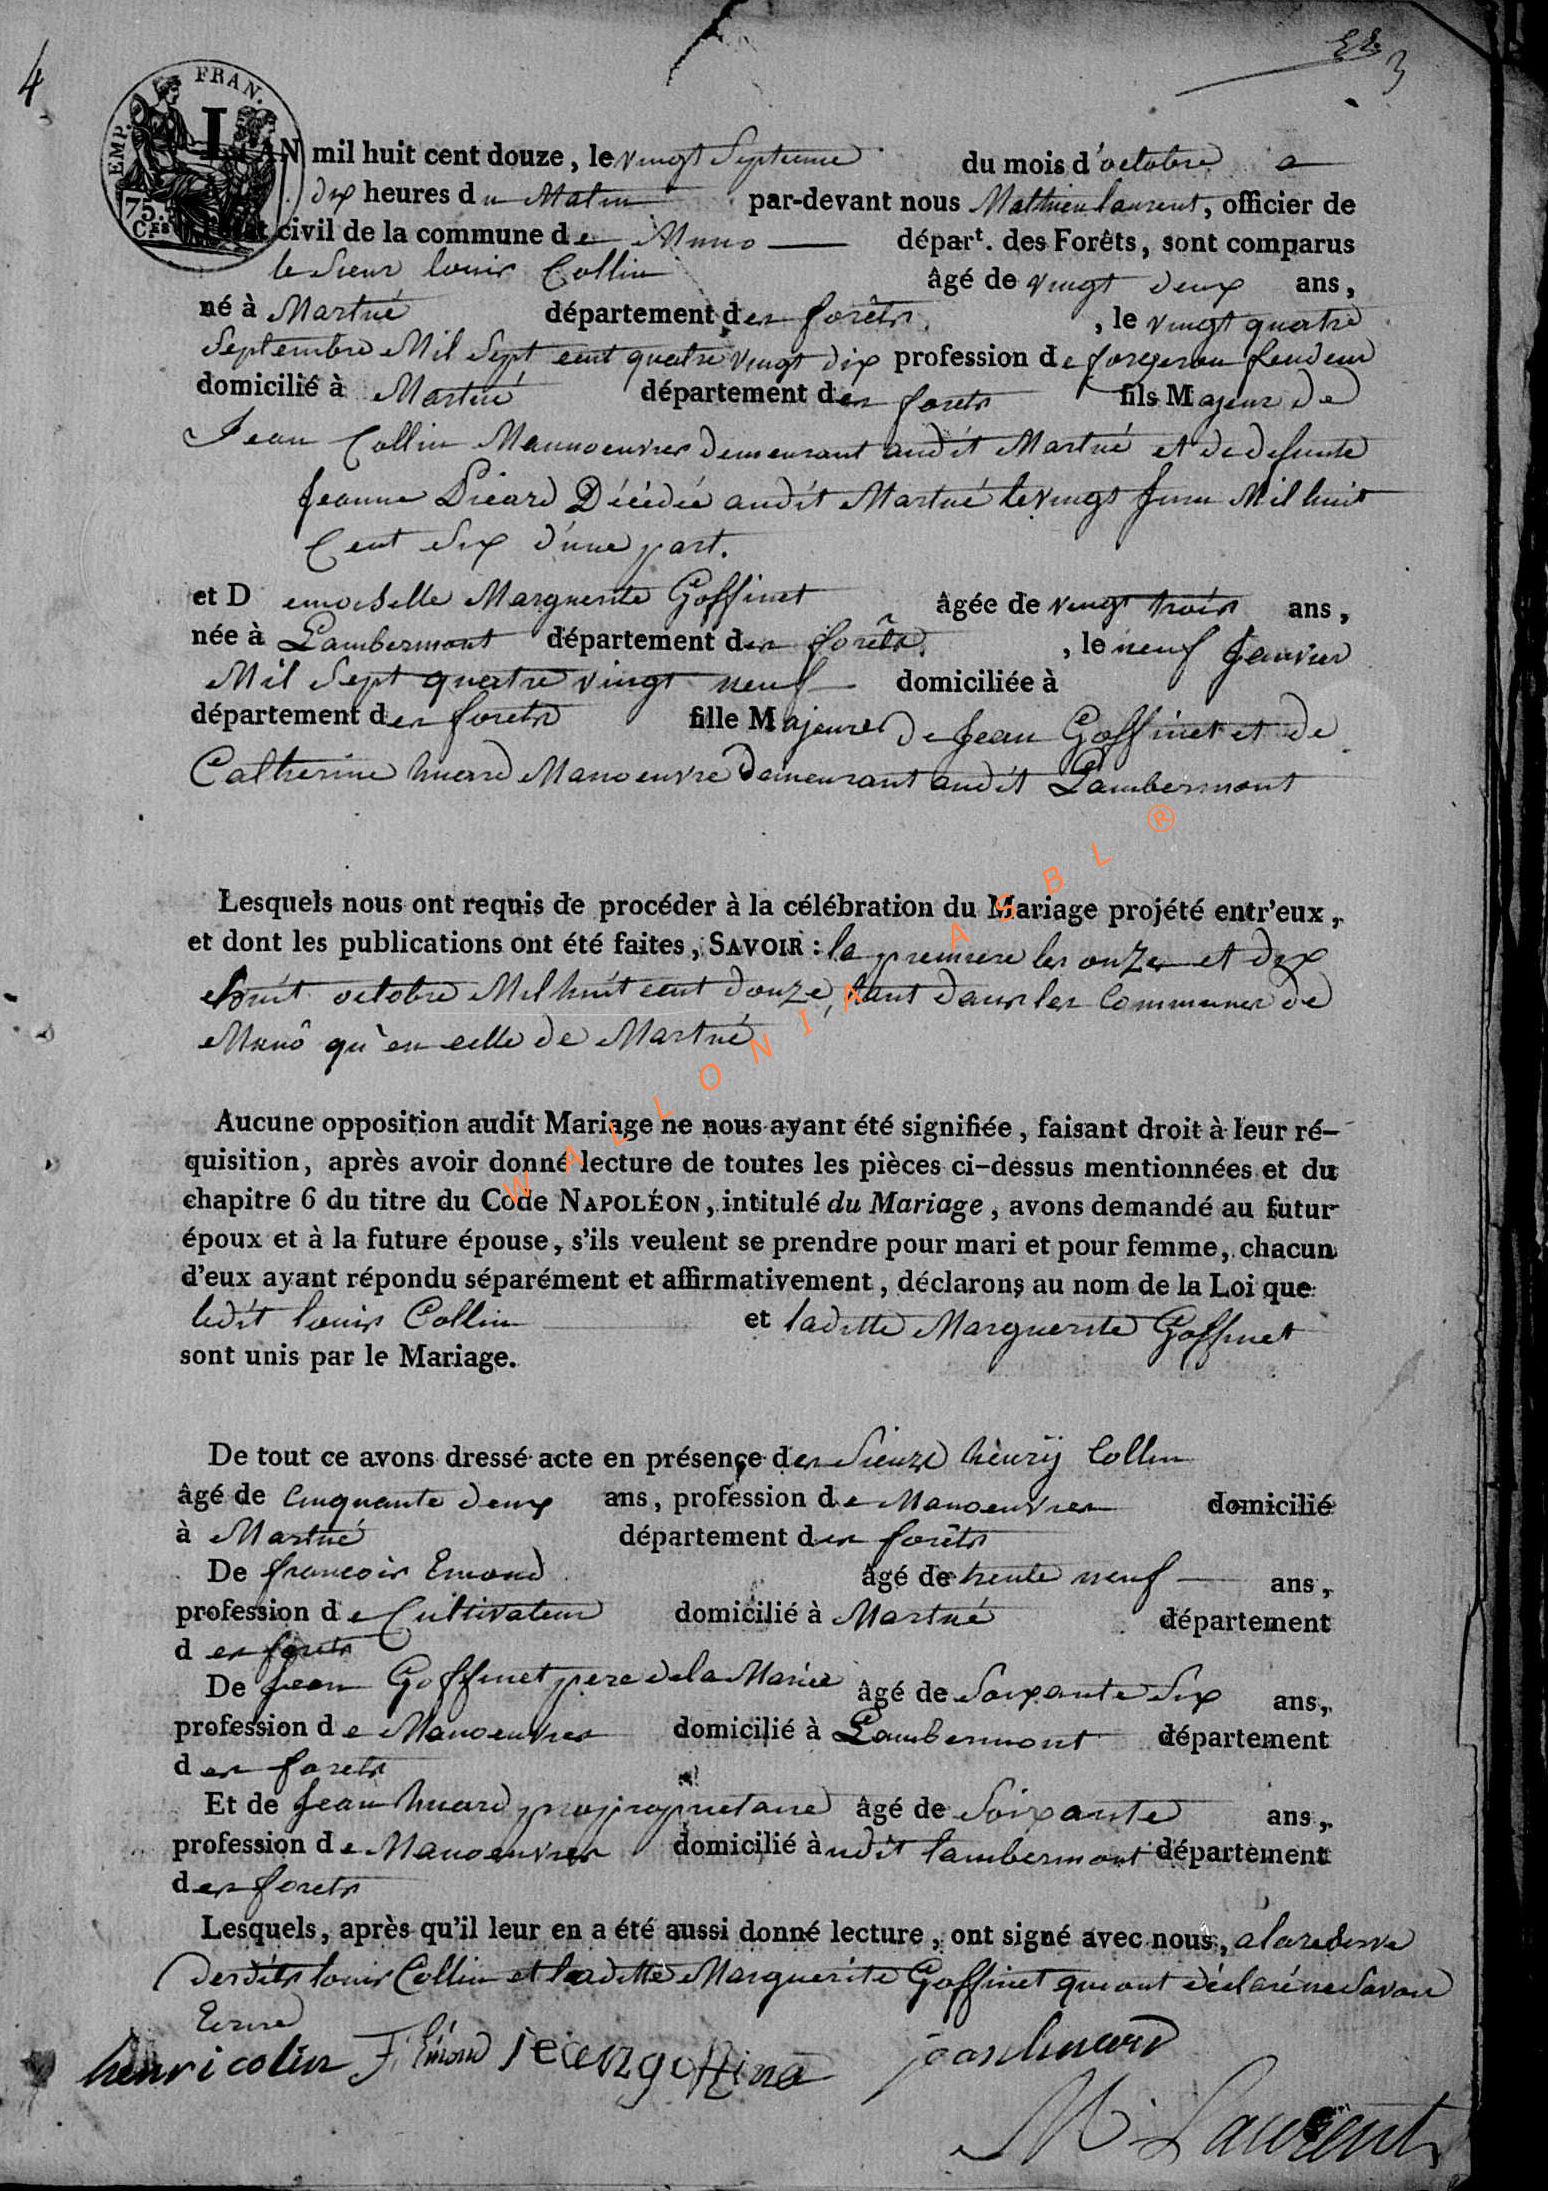 4
EMP. FRAN.
75. C.ES
L'AN mil huit cent douze, le vingt Septieme du mois d'octobre a
dix heures du Matin par-devant nous Mathieu laurent, officier de
l'état civil de la commune de Muno départ. des Forêts, sont comparus
le Sieur louis Collin âgé de vingt deux ans,
né à Martué département des forêts, le vingt quatre
Septembre Mil Sept cent quatre vingt dix profession de forgeron fendeur
domicilié à Martué département des forets fils Majeur de
Jean Collin Mannoeuvres demeurant audit Martué et de defunte
Jeanne Picard Décédée audit Martué le vingt Juin Mil huit
Cent Six d'une part.
et Demoiselle Marguerite Goffinet âgée de vingt trois ans,
née à Lambermont département des forêts, le neuf Janvier
Mil Sept quatre vingt neuf domiciliée à
département des forets fille Majeure de Jean Goffinet et de
Catherine huard Manoeuvre demeurant audit Lambermont
Lesquels nous ont requis de procéder à la célébration du Mariage projété entr'eux,
et dont les publications ont été faites, SAVOIR : la premiere les onze et dix
huit octobre Mil huit cent douze, tant dans les Communes de
Munô qu'en celle de Martué
Aucune opposition audit Mariage ne nous ayant été signifiée, faisant droit à leur ré-
quisition, après avoir donné lecture de toutes les pièces ci-dessus mentionnées et du
chapitre 6 du titre du Code NAPOLÉON, intitulé du Mariage, avons demandé au futur
époux et à la future épouse, s'ils veulent se prendre pour mari et pour femme, chacun
d'eux ayant répondu séparément et affirmativement, déclarons au nom de la Loi que
ledit louis Collin et laditte Marguerite Goffinet
sont unis par le Mariage.
De tout ce avons dressé acte en présence des Sieurs henrÿ Collin
âgé de Cinquante deux ans, profession de Manoeuvres domicilié
à Martué département des forêts
De francois Emond âgé de trente neuf ans,
profession de Cultivateur domicilié à Martué département
des forets
De Jean Goffinet pere de la Mariée âgé de Soixante Six ans,
profession de Manoeuvres domicilié à Lambermont département
des forets
Et de Jean huard propropriétaire âgé de Soixante ans,
profession de Manoeuvres domicilié àudit lambermont département
des forets
Lesquels, après qu'il leur en a été aussi donné lecture, ont signé avec nous, a la reserve
desdits louis Collin et laditte Marguerite Goffinet qui ont déclaré ne Savoir
Ecrire
henri colin F. Emond jean goffina jean huard
M. Laurent
WALLONIA ASBL ®